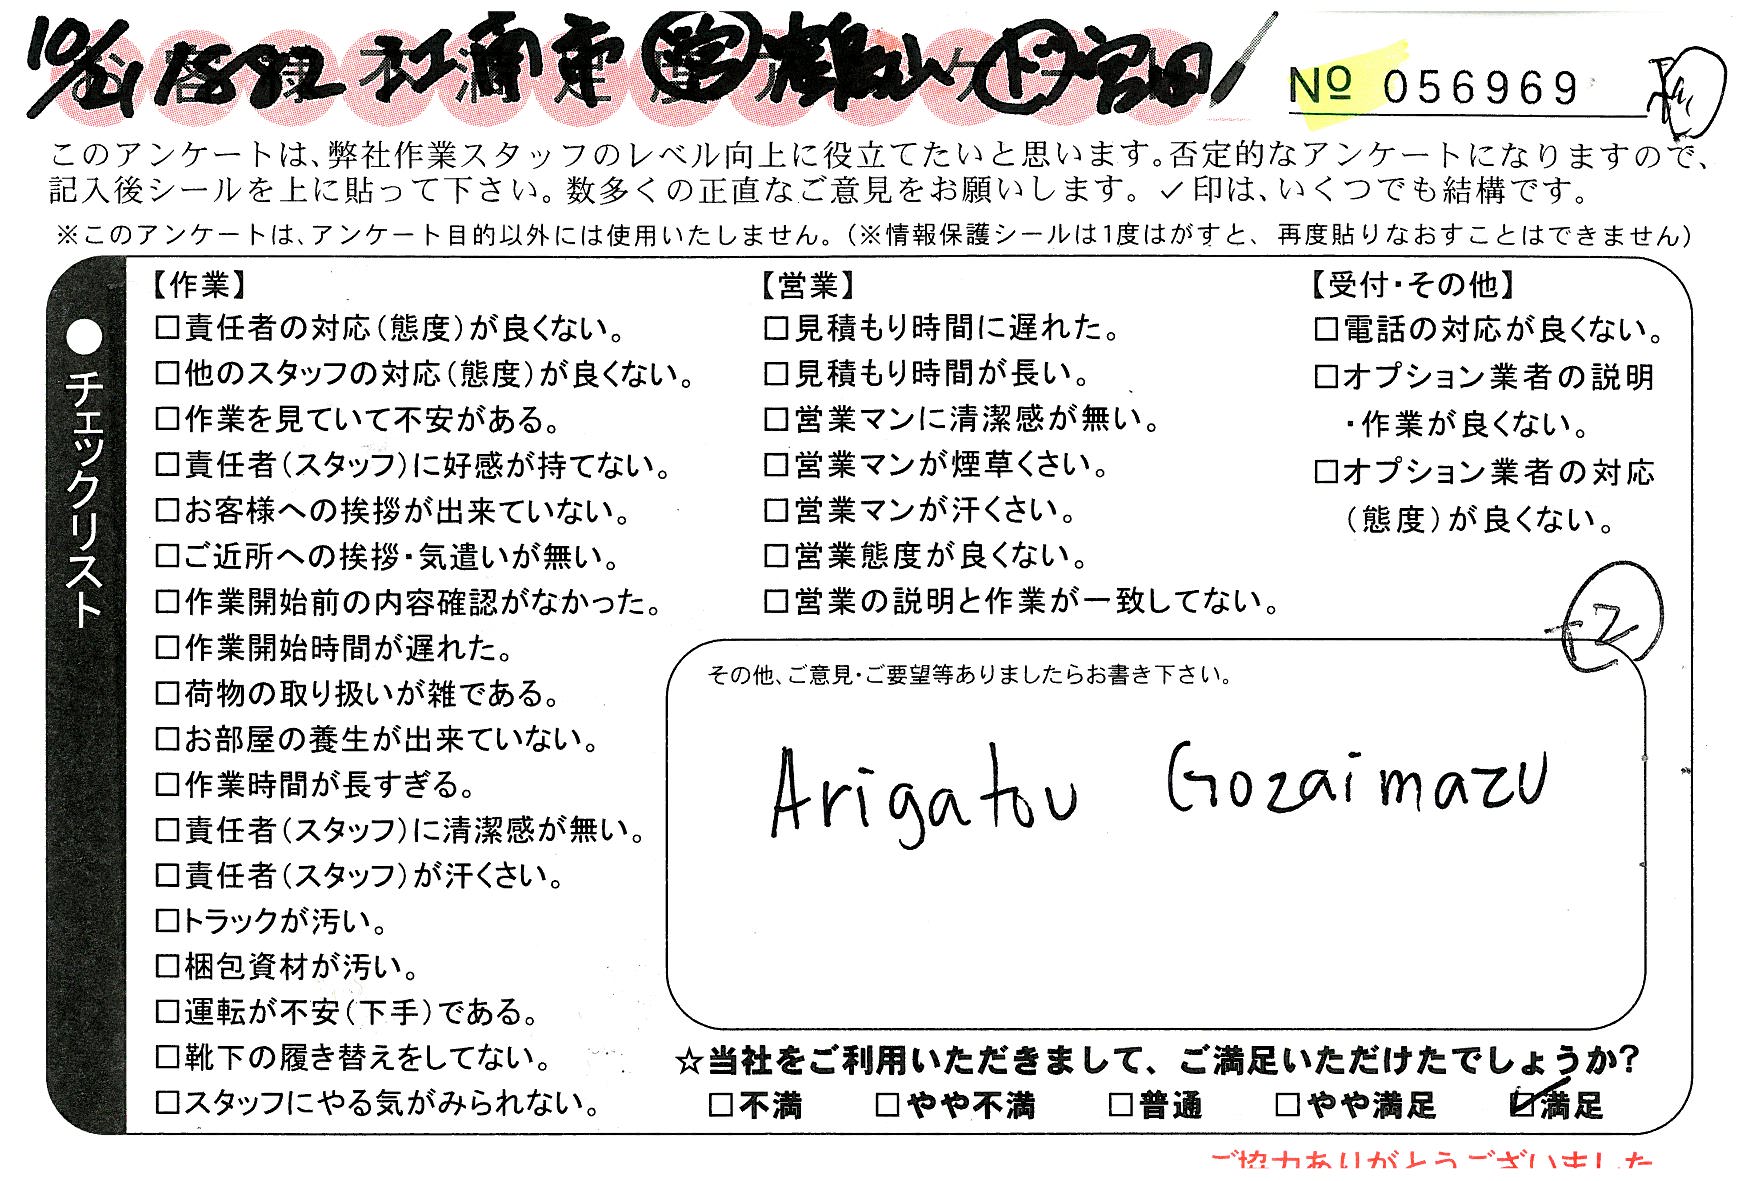 10/21 1582 江浦東 営 ト 宮田
No 056969
このアンケートは、弊社作業スタッフのレベル向上に役立てたいと思います。否定的なアンケートになりますので、
記入後シールを上に貼って下さい。数多くの正直なご意見をお願いします。✓印は、いくつでも結構です。
※このアンケートは、アンケート目的以外には使用いたしません。(※情報保護シールは1度はがすと、再度貼りなおすことはできません)
●チェックリスト
【作業】
□責任者の対応(態度)が良くない。
□他のスタッフの対応(態度)が良くない。
□作業を見ていて不安がある。
□責任者(スタッフ)に好感が持てない。
□お客様への挨拶が出来ていない。
□ご近所への挨拶・気遣いが無い。
□作業開始前の内容確認がなかった。
□作業開始時間が遅れた。
□荷物の取り扱いが雑である。
□お部屋の養生が出来ていない。
□作業時間が長すぎる。
□責任者(スタッフ)に清潔感が無い。
□責任者(スタッフ)が汗くさい。
□トラックが汚い。
□梱包資材が汚い。
□運転が不安(下手)である。
□靴下の履き替えをしてない。
□スタッフにやる気がみられない。
【営業】
□見積もり時間に遅れた。
□見積もり時間が長い。
□営業マンに清潔感が無い。
□営業マンが煙草くさい。
□営業マンが汗くさい。
□営業態度が良くない。
□営業の説明と作業が一致してない。
【受付・その他】
□電話の対応が良くない。
□オプション業者の説明
・作業が良くない。
□オプション業者の対応
(態度)が良くない。
+2
その他、ご意見・ご要望等ありましたらお書き下さい。
Arigatou Gozaimazu
☆当社をご利用いただきまして、ご満足いただけたでしょうか?
□不満 □やや不満 □普通 □やや満足 ☑満足
ご協力ありがとうございました